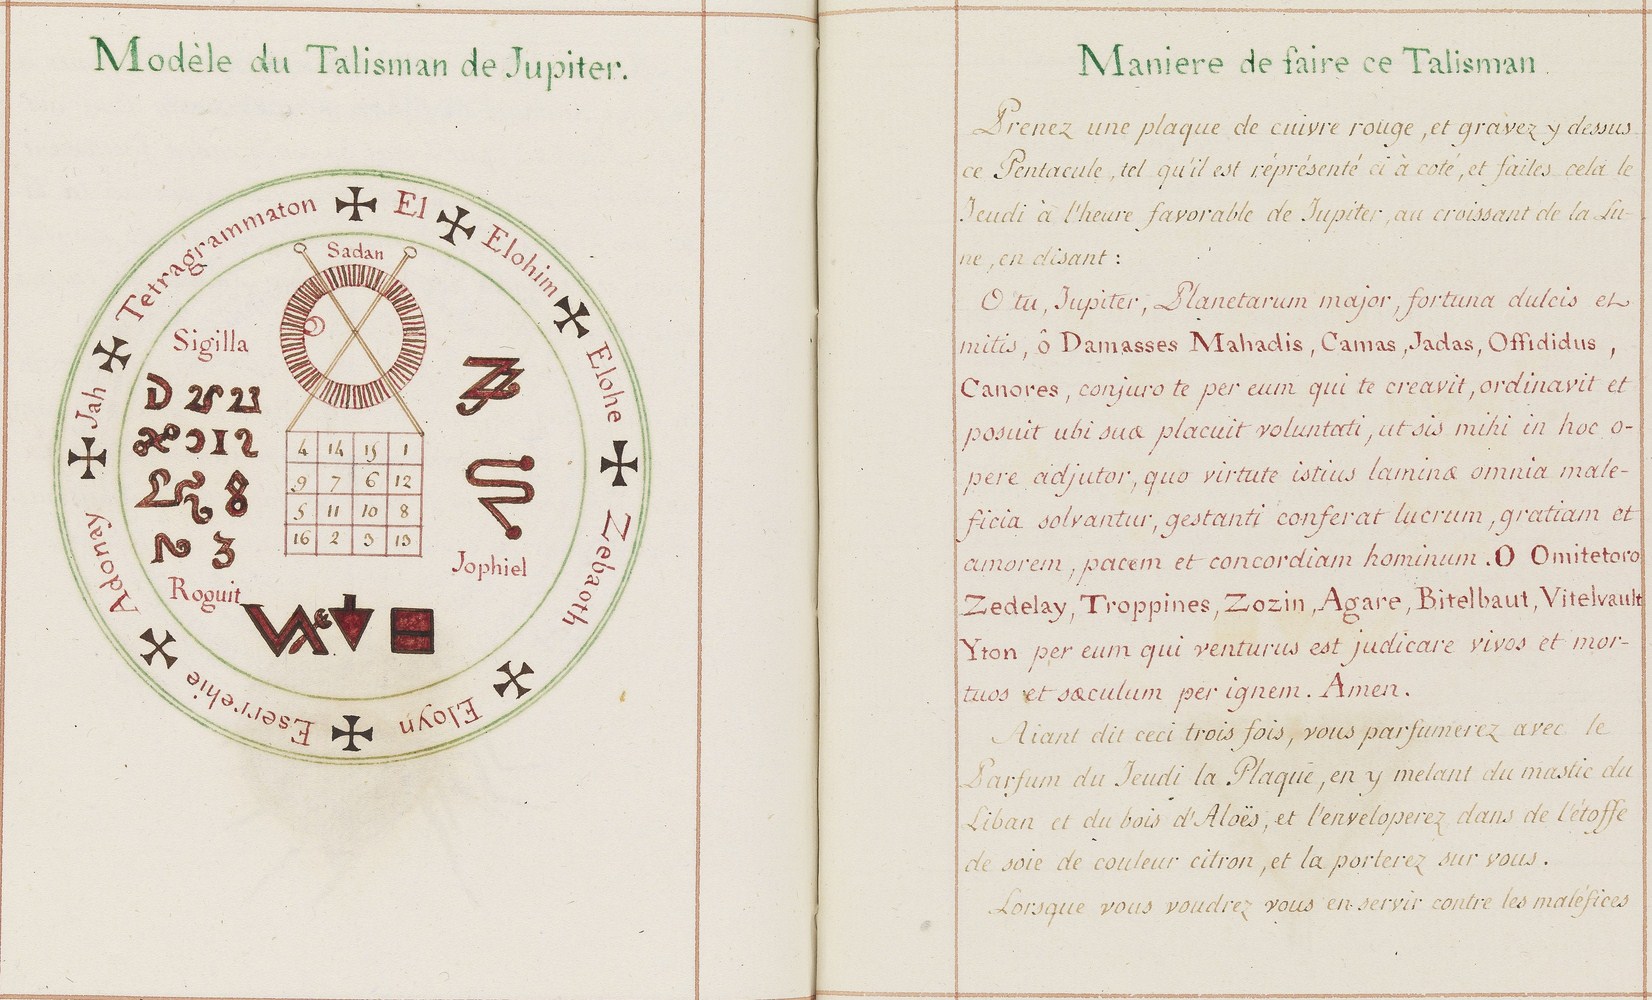 Modèle du Talisman de Jupiter.
Tetragrammaton ✠ El ✠ Elohim ✠ Elohe ✠ Zebaoth ✠ Eloyn ✠ Eserrehie ✠ Adonay ✠ Jah ✠
Sadan
Sigilla
4 14 15 1
9 7 6 12
5 11 10 8
16 2 3 13
Jophiel
Roguit
Maniere de faire ce Talisman.
Prenez une plaque de cuivre rouge, et gravez y dessus
ce Pentacule, tel qu'il est réprésenté ci à coté, et faites cela le
Jeudi à l'heure favorable de Jupiter, au croissant de la Lu-
ne, en disant :
O tu, Jupiter, Planetarum major, fortuna dulcis et
mitis, ô Damasses Mahadis, Camas, Jadas, Offididus,
Canores, conjuro te per eum qui te creavit, ordinavit et
posuit ubi suæ placuit voluntati, ut sis mihi in hoc o-
pere adjutor, quo virtute istius laminæ omnia male-
ficia solvantur, gestanti conferat lucrum, gratiam et
amorem, pacem et concordiam hominum. O Omitetoro
Zedelay, Troppines, Zozin, Agare, Bitelbaut, Vitelvault
Yton per eum qui venturus est judicare vivos et mor-
tuos et sæculum per ignem. Amen.
Aiant dit ceci trois fois, vous parfumerez avec le
Parfum du Jeudi la Plaque, en y melant du mastic du
Liban et du bois d'Aloës, et l'enveloperez dans de l'étoffe
de soie de couleur citron, et la porterez sur vous.
Lorsque vous voudrez vous en servir contre les maléfices